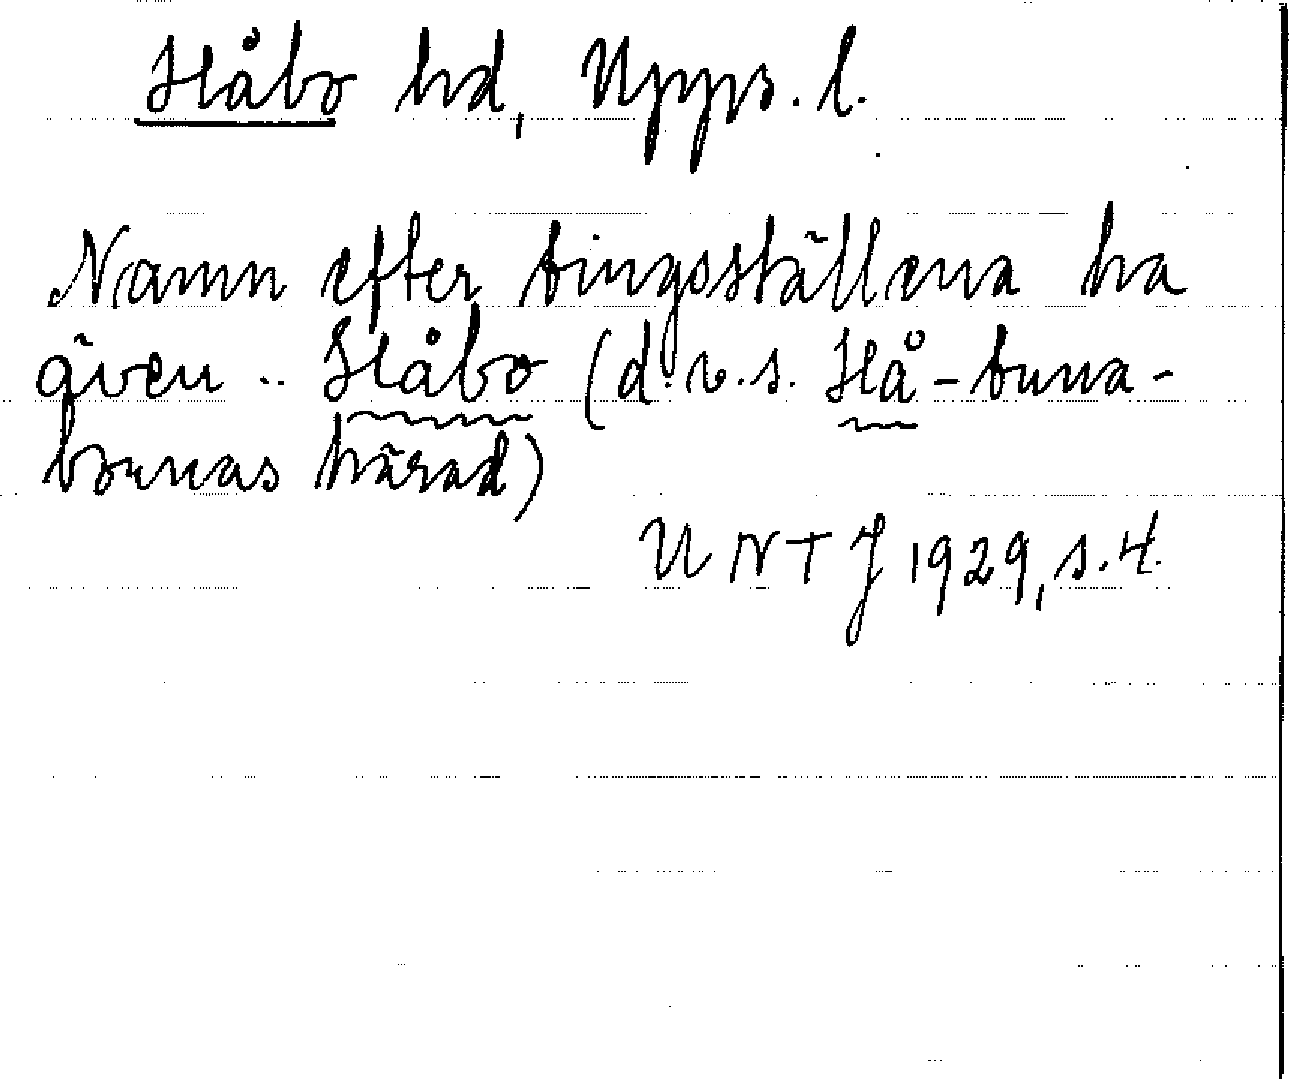 Håbo hd, Upps. l.
Namn efter tingsställena ha
även .. Håbo (d.v.s. Hå-tuna-
bornas härad)
UNTJ 1929, s. 4.